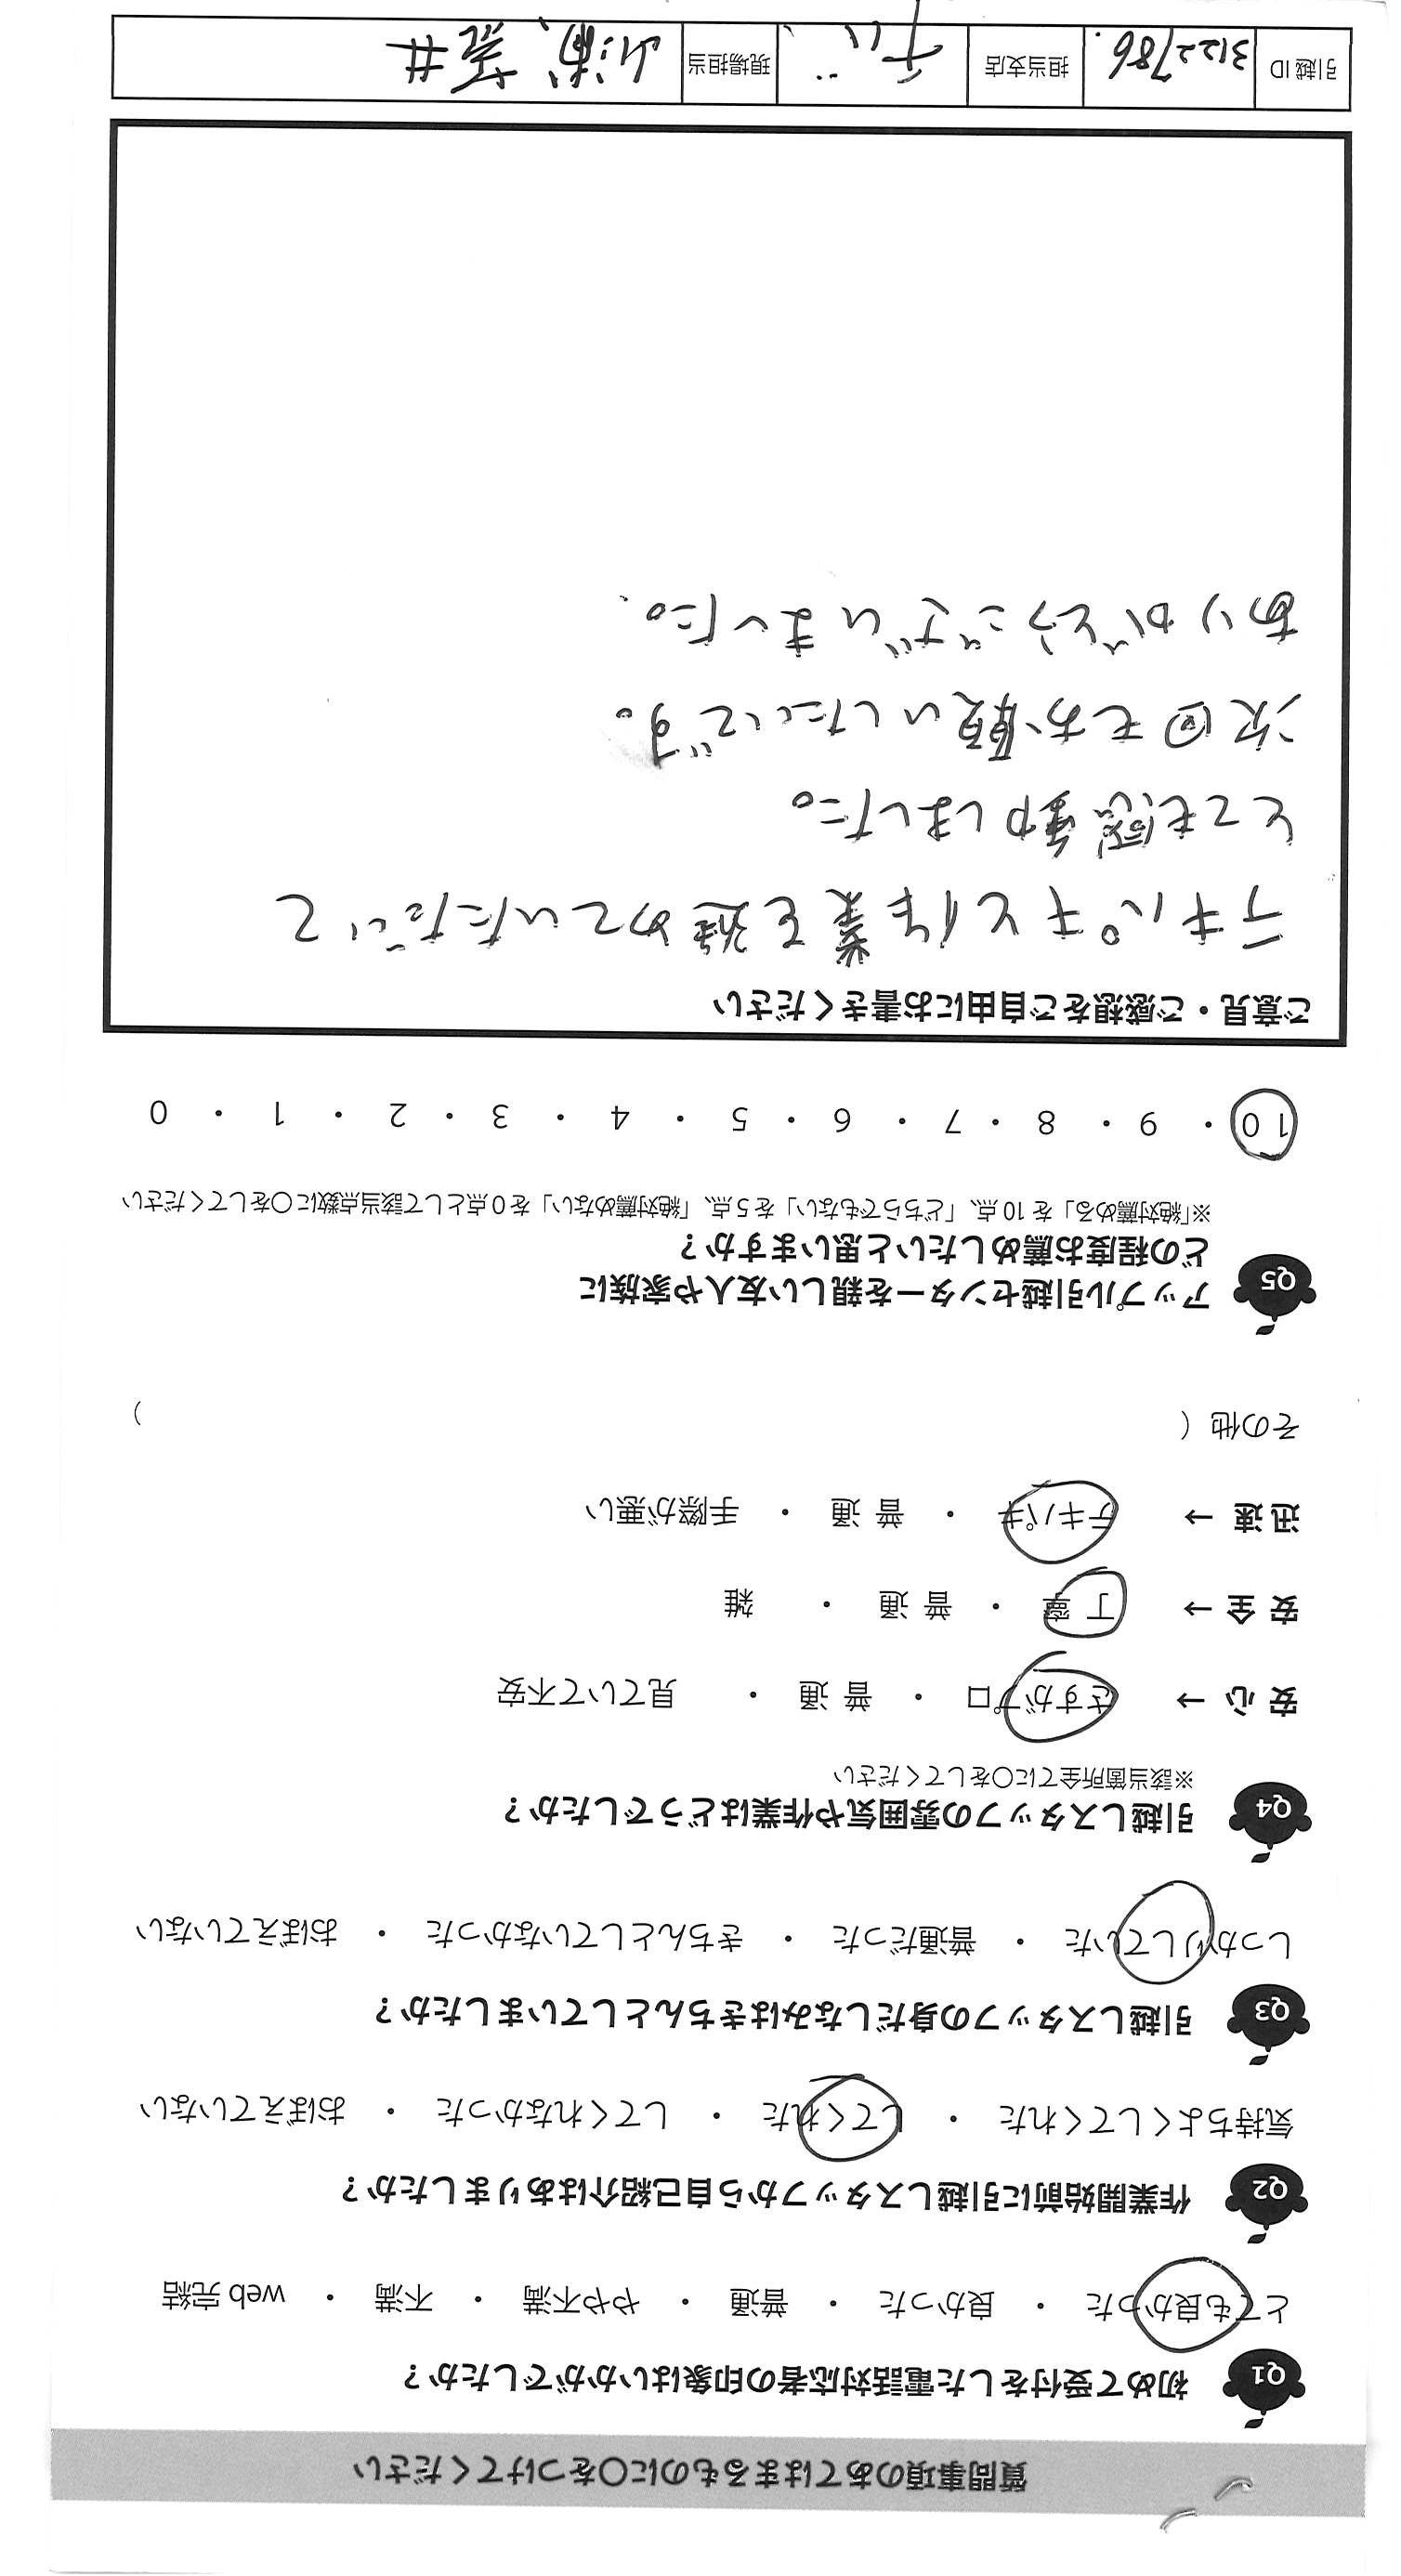 質問事項のあてはまるものに○をつけてください
Q1 初めて受付をした電話対応者の印象はいかがでしたか？
とても良かった ・ 良かった ・ 普通 ・ やや不満 ・ 不満 ・ web 完結
Q2 作業開始前に引越しスタッフから自己紹介はありましたか？
気持ちよくしてくれた ・ してくれた ・ してくれなかった ・ おぼえていない
Q3 引越しスタッフの身だしなみはきちんとしていましたか？
しっかりしていた ・ 普通だった ・ きちんとしていなかった ・ おぼえていない
Q4 引越しスタッフの雰囲気や作業はどうでしたか？
※該当箇所全てに○をしてください
安 心 → さすがプロ ・ 普 通 ・ 見ていて不安
安 全 → 丁 寧 ・ 普 通 ・ 雑
迅 速 → テキパキ ・ 普 通 ・ 手際が悪い
その他（ ）
Q5 アップル引越センターを親しい友人や家族に
どの程度お薦めしたいと思いますか？
※「絶対薦める」を 10 点、「どちらでもない」を 5 点、「絶対薦めない」を 0 点として該当点数に○をしてください
10 ・ 9 ・ 8 ・ 7 ・ 6 ・ 5 ・ 4 ・ 3 ・ 2 ・ 1 ・ 0
ご意見・ご感想をご自由にお書きください
テキパキと作業を進めていただいて
とても感動しました。
次回もお願いしたいです。
ありがとうございました。
引越 ID 3122786 担当支店 千葉 現場担当 山浦、荒井